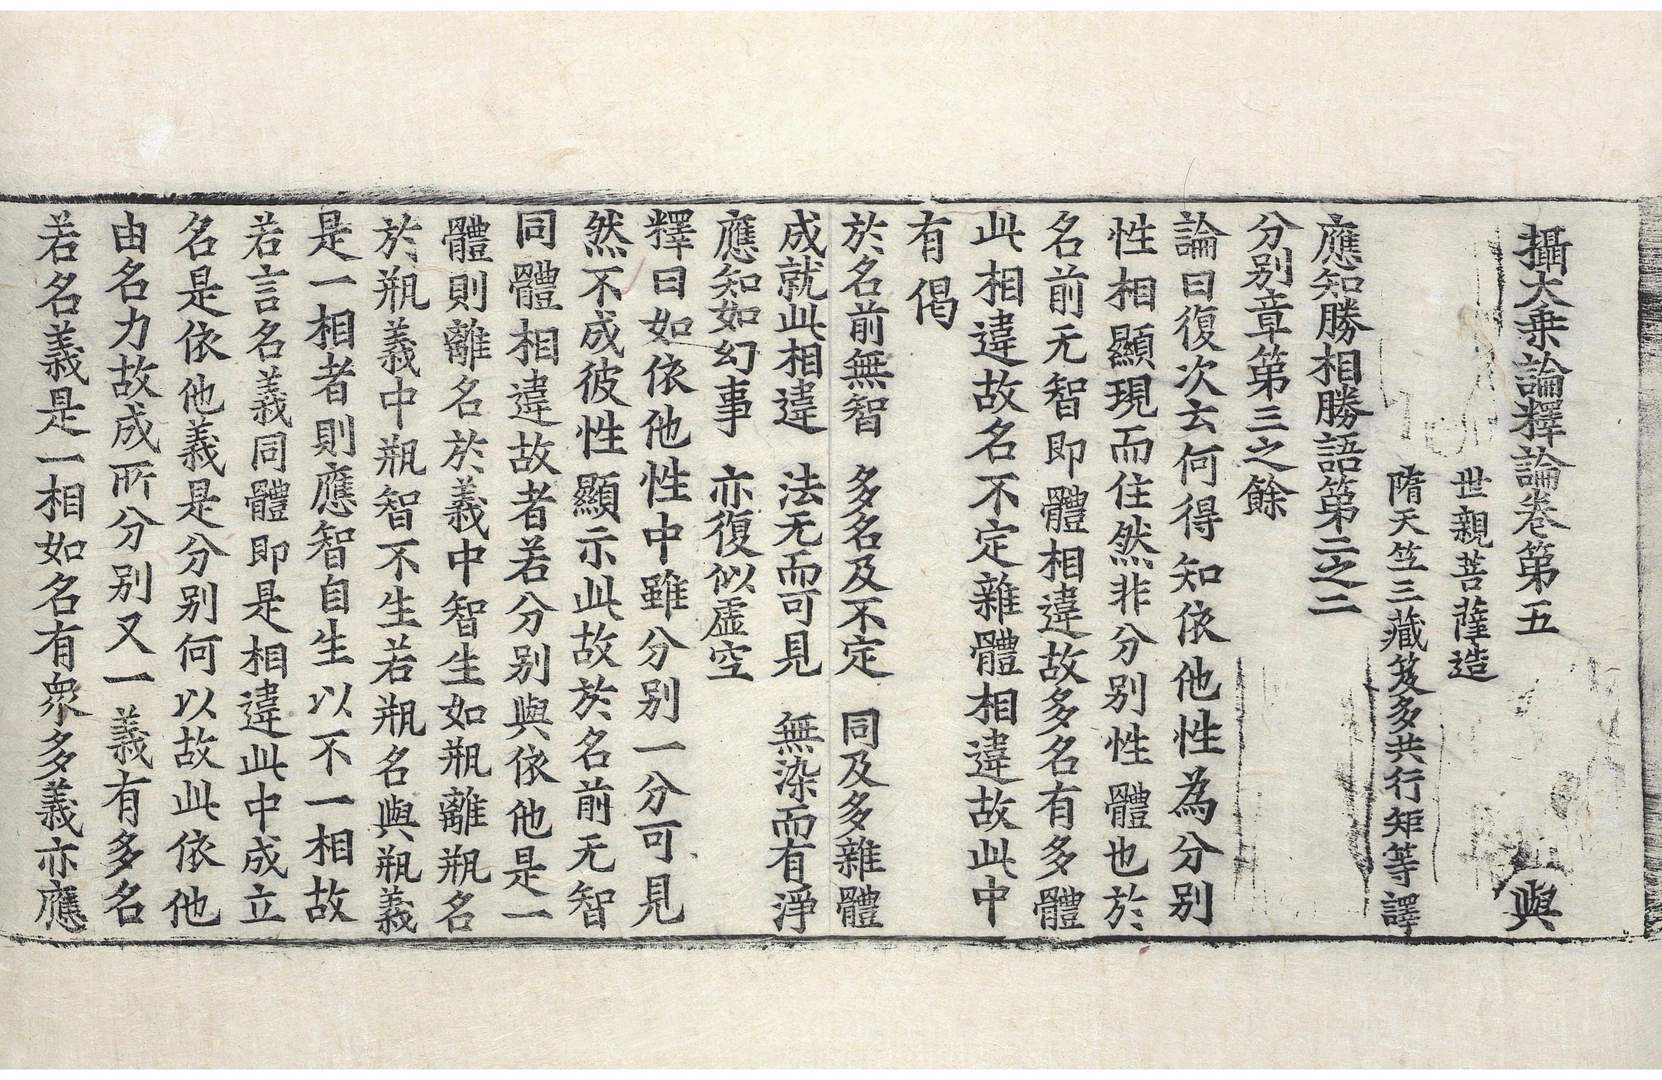 攝大乗論釋論卷第五 與
世親菩薩造
隋天竺三藏笈多共行矩等譯
應知勝相勝語第二之二
分别章第三之餘
論曰復次云何得知依他性為分别
性相顯現而住然非分别性體也於
名前无智即體相違故多名有多體
此相違故名不定雜體相違故此中
有偈
於名前無智 多名及不定 同及多雜體
成就此相違 法无而可見 無染而有淨
應知如幻事 亦復似虚空
釋曰如依他性中雖分别一分可見
然不成彼性顯示此故於名前无智
同體相違故者若分别與依他是一
體則離名於義中智生如瓶離瓶名
於瓶義中瓶智不生若瓶名與瓶義
是一相者則應智自生以不一相故
若言名義同體即是相違此中成立
名是依他義是分别何以故此依他
由名力故成所分别又一義有多名
若名義是一相如名有衆多義亦應